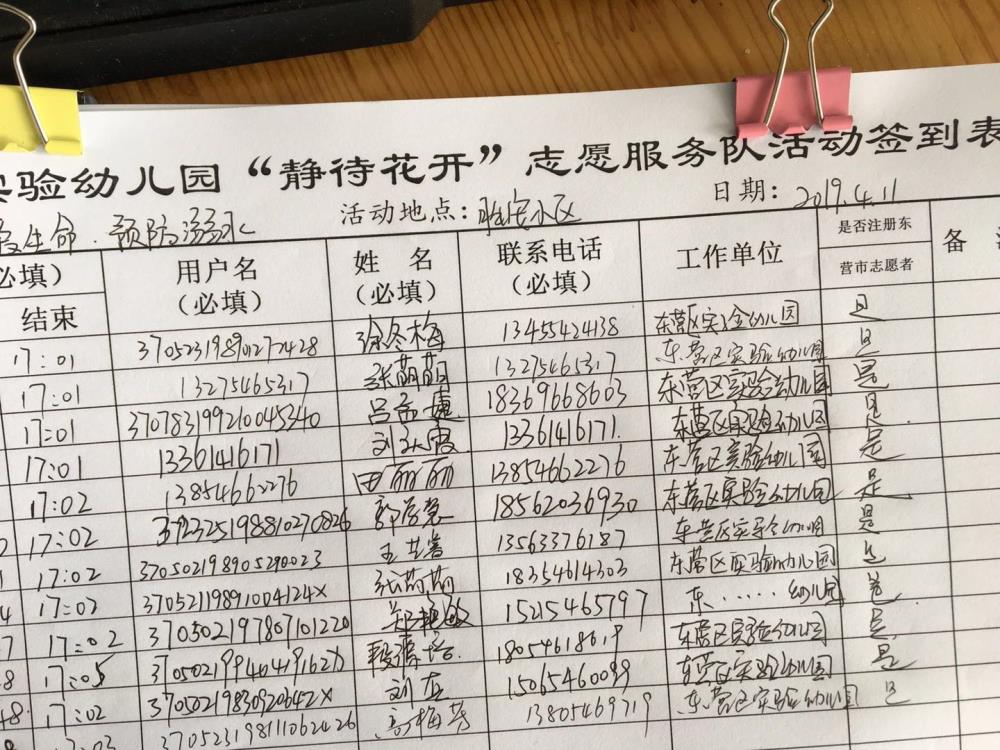 实验幼儿园“静待花开”志愿服务队活动签到表
爱生命、预防溺水 活动地点：胜安小区 日期：2019.4.11
必填） 用户名（必填） 姓 名（必填） 联系电话（必填） 工作单位 是否注册东营市志愿者 备
结束
17:01 370523198901272428 徐冬梅 13455424138 东营区实验幼儿园 是
17:01 13275465317 张萌萌 13275465317 东营区实验幼儿园 是
17:01 370783199210045340 吕孟婕 18369668603 东营区实验幼儿园 是
17:01 13361416171 刘 霞 13361416171. 东营区实验幼儿园 是
17:02 13854662276 田丽丽 13854662276 东营区实验幼儿园 是
17:02 372325198810270826 郭 慧 18562036930 东营区实验幼儿园 是
17:02 370502198905290023 王 13563376187 东营区实验幼儿园 是
17:02 37052119891004124X 张萌萌 18354614303 东营区实验幼儿园 是
17:02 370502197807101220 郑艳敏 15215465797 东......幼儿园 是
17:05 37050219940419162X 段 18054618619 东营区实验幼儿园 是
17:02 37050219830920642X 刘 15065460099 东营区实验幼儿园 是
17:03 370523198111062426 高梅芳 13805469719 东营区实验幼儿园 是